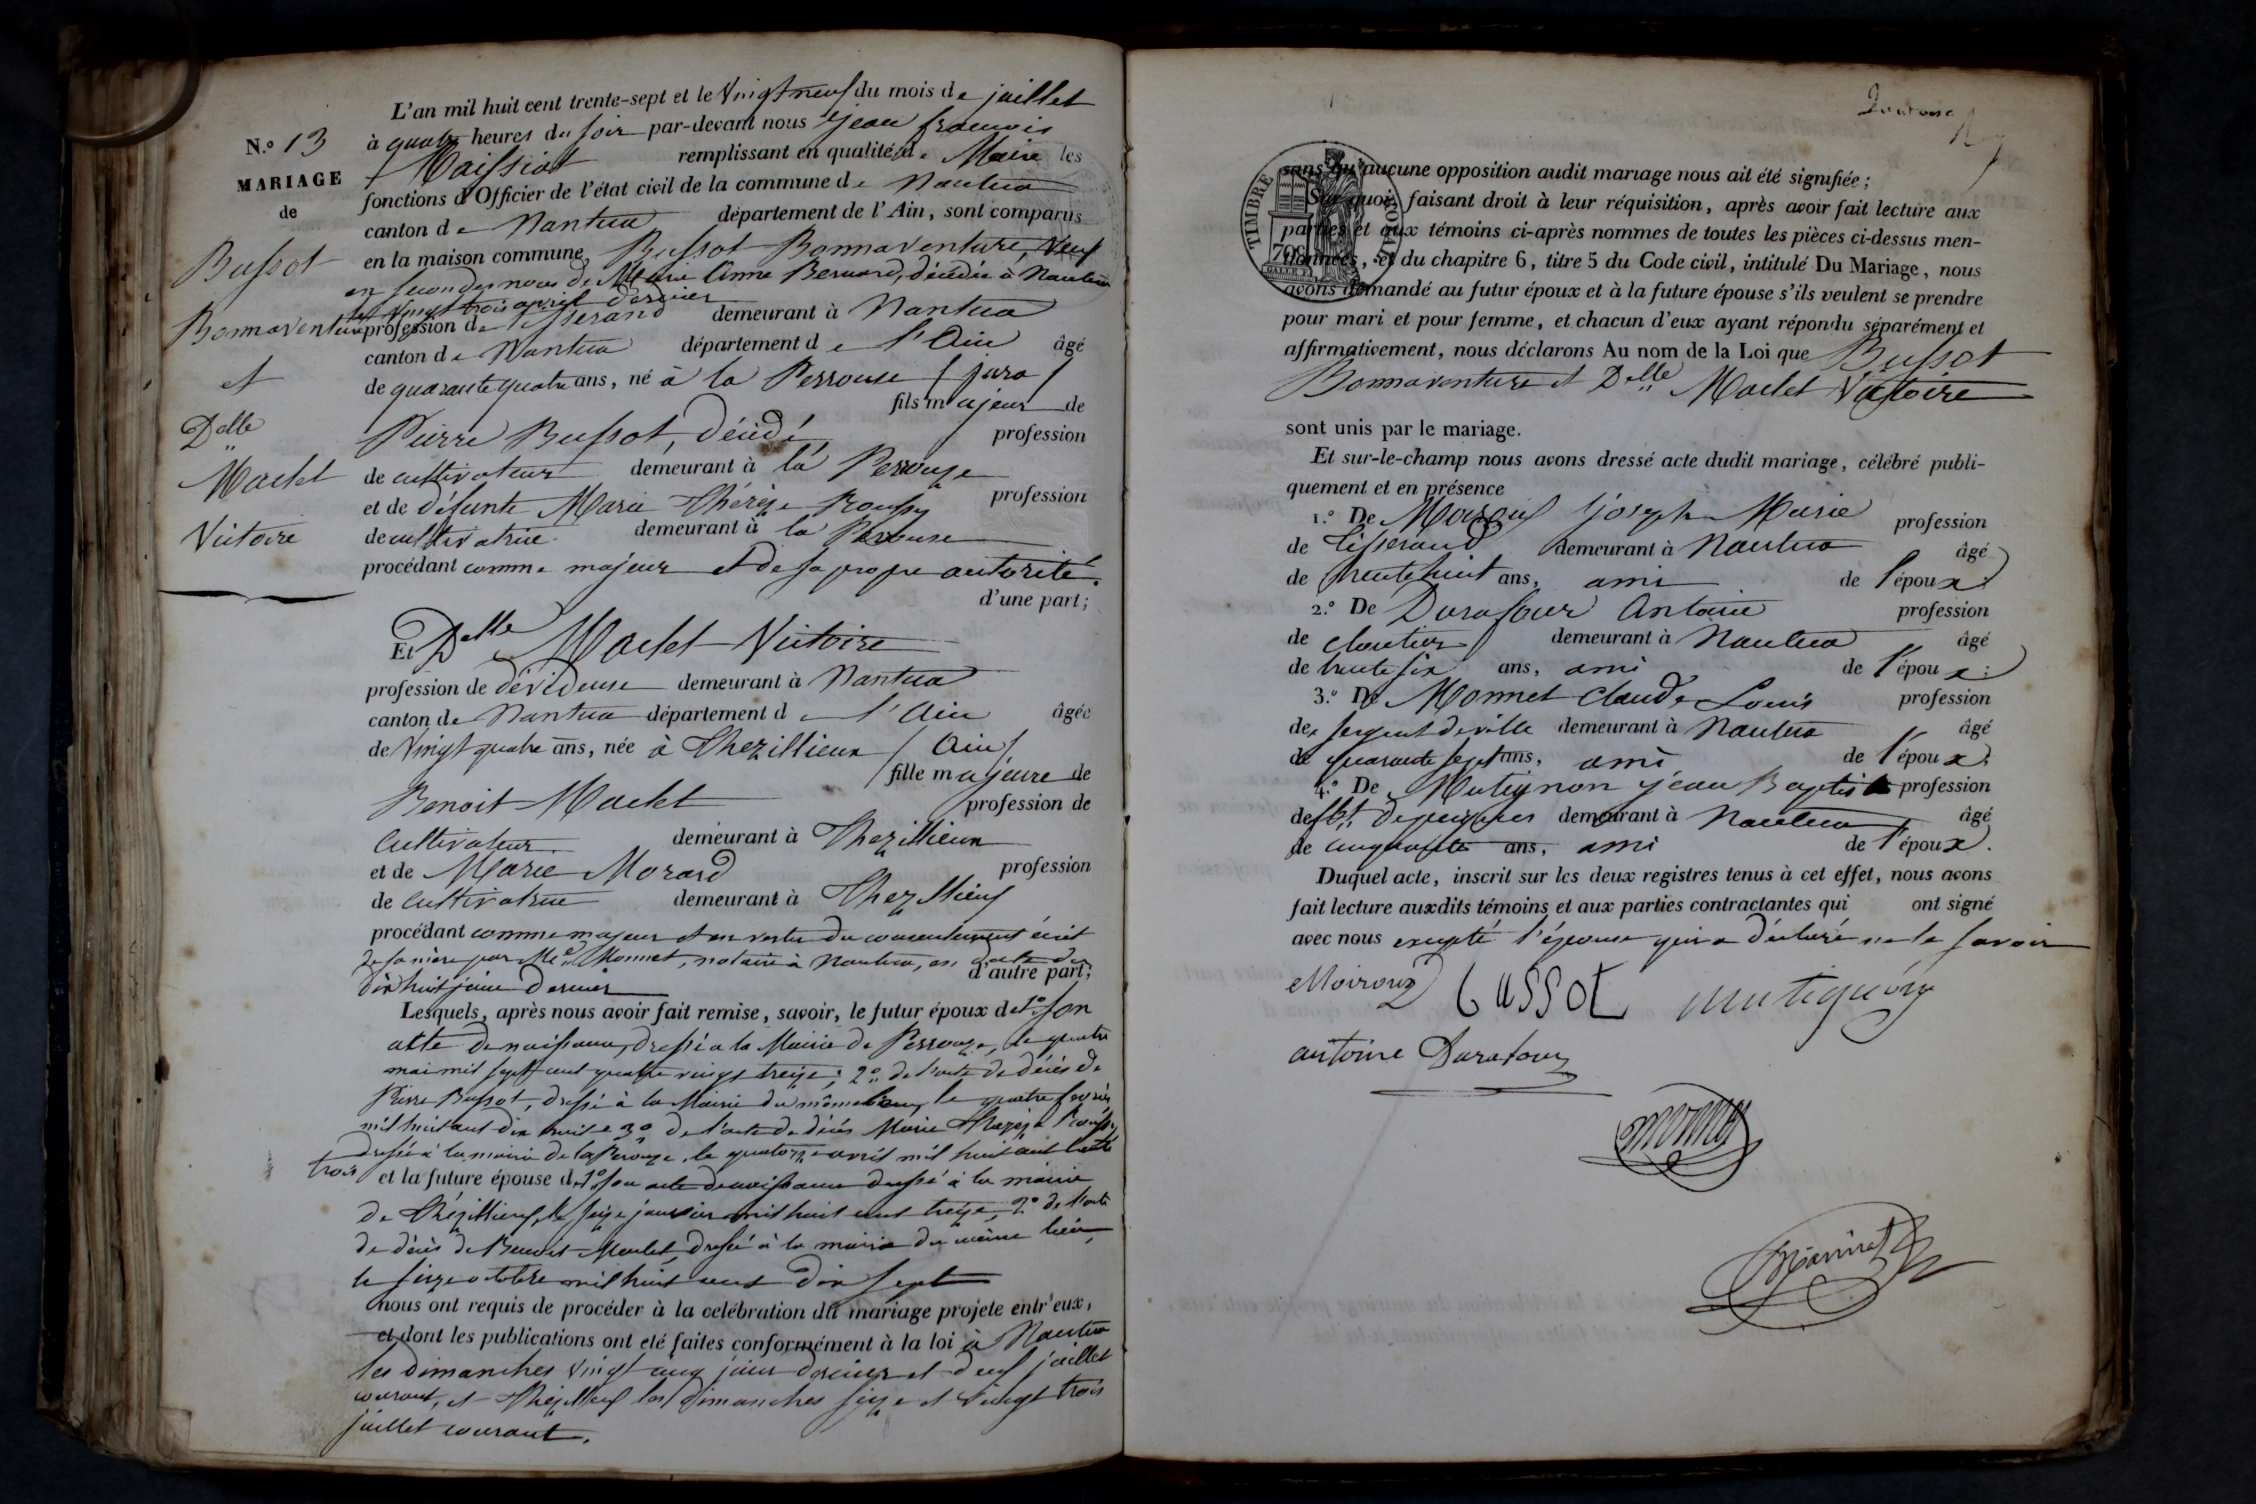 N.º 13
MARIAGE
de
Bussot
Bonnaventure
et
Delle
Maclet
Victoire
L'an mil huit cent trente-sept et le Vingt neuf du mois de juillet
à quatre heures du soir par-devant nous jean francois
Maissiat remplissant en qualité de Maire les
fonctions d'Officier de l'état civil de la commune de Nantua
canton de Nantua département de l'Ain, sont comparus
en la maison commune, Bussot Bonnaventure, Veuf
en secondes noces de Marie Anne Bernard, décédée à Nantua
le Vingt trois avril dernier
profession de tisserand demeurant à Nantua
canton de Nantua département de l'Ain âgé
de quarante quatre ans, né à la Perrouse (jura)
fils majeur de
Pierre Bussot, décédé, profession
de cultivateur demeurant à la Perouze
et de défunte Marie Thérèze Roussy profession
de cultivatrice demeurant à la Perouse
procédant comme majeur et de sa propre autorité.
d'une part;
Et Delle Maclet Victoire
profession de dévideuse demeurant à Nantua
canton de Nantua département de l'Ain âgée
de Vingt quatre ans, née à Thezillieux (Ain)
fille majeure de
Benoit Maclet profession de
Cultivateur demeurant à Thezillieux
et de Marie Morard profession
de Cultivatrice demeurant à Thezillieux
procédant comme majeur et en vertu du consentement écrit
de sa mère par Me Monnet, notaire à Nantua, en date du
d'autre part;
dix huit juin dernier
Lesquels, après nous avoir fait remise, savoir, le futur époux de 1º son
acte de naissance, dressé à la Mairie de Perrouze, le quatre
mai mil sept cent quatre vingt treize; 2º de l'acte de décès de
Pierre Bussot, dressé à la Mairie du même lieu, le quatre fevrier
mil huit cent dix huit 3º de l'acte de décès Marie Thérèze Roussy
dressé à la mairie de la Perouze, le quatorze avril mil huit cent trente
trois et la future épouse de 1º son acte de naissance dressé à la mairie
de Thézillieux, le seize janvier mil huit cent treize, 2º de l'acte
de décès de Benoit Maclet, dressé à la mairie du même lieu,
le seize octobre mil huit cent dix sept
nous ont requis de procéder à la celébration du mariage projete entr'eux,
et dont les publications ont eté faites conformément à la loi à Nantua
les dimanches vingt cinq juin dernier et deux juillet
courant, et Thézillieux les dimanches seize et vingt trois
juillet courant.
sans qu'aucune opposition audit mariage nous ait été signifiée;
Sur quoi, faisant droit à leur réquisition, après avoir fait lecture aux
parties et aux témoins ci-après nommes de toutes les pièces ci-dessus men-
tionnées, et du chapitre 6, titre 5 du Code civil, intitulé Du Mariage, nous
avons demandé au futur époux et à la future épouse s'ils veulent se prendre
pour mari et pour femme, et chacun d'eux ayant répondu séparément et
affirmativement, nous déclarons Au nom de la Loi que Bussot
Bonnaventure et Delle Maclet Victoire
sont unis par le mariage.
Et sur-le-champ nous avons dressé acte dudit mariage, célébré publi-
quement et en présence
1.º De Moiroud Joseph Marie profession
de Tisserand demeurant à Nantua âgé
de trente huit ans, ami de l'époux.
2.º De Durafour Antoine profession
de cloutier demeurant à Nantua âgé
de trente six ans, ami de l'époux:
3.º De Monnet Claude Louis profession
de sergent de ville demeurant à Nantua âgé
de quarante sept ans, ami de l'époux.
4.º De Mutignon jean Baptiste profession
de demeurant à Nantua âgé
de cinquante ans, ami de l'époux.
Duquel acte, inscrit sur les deux registres tenus à cet effet, nous avons
fait lecture auxdits témoins et aux parties contractantes qui ont signé
avec nous excepté l'épouse qui a déclaré ne le savoir
Moiroud bussot mutignon
antoine Durafour
monnet
TIMBRE ROYAL